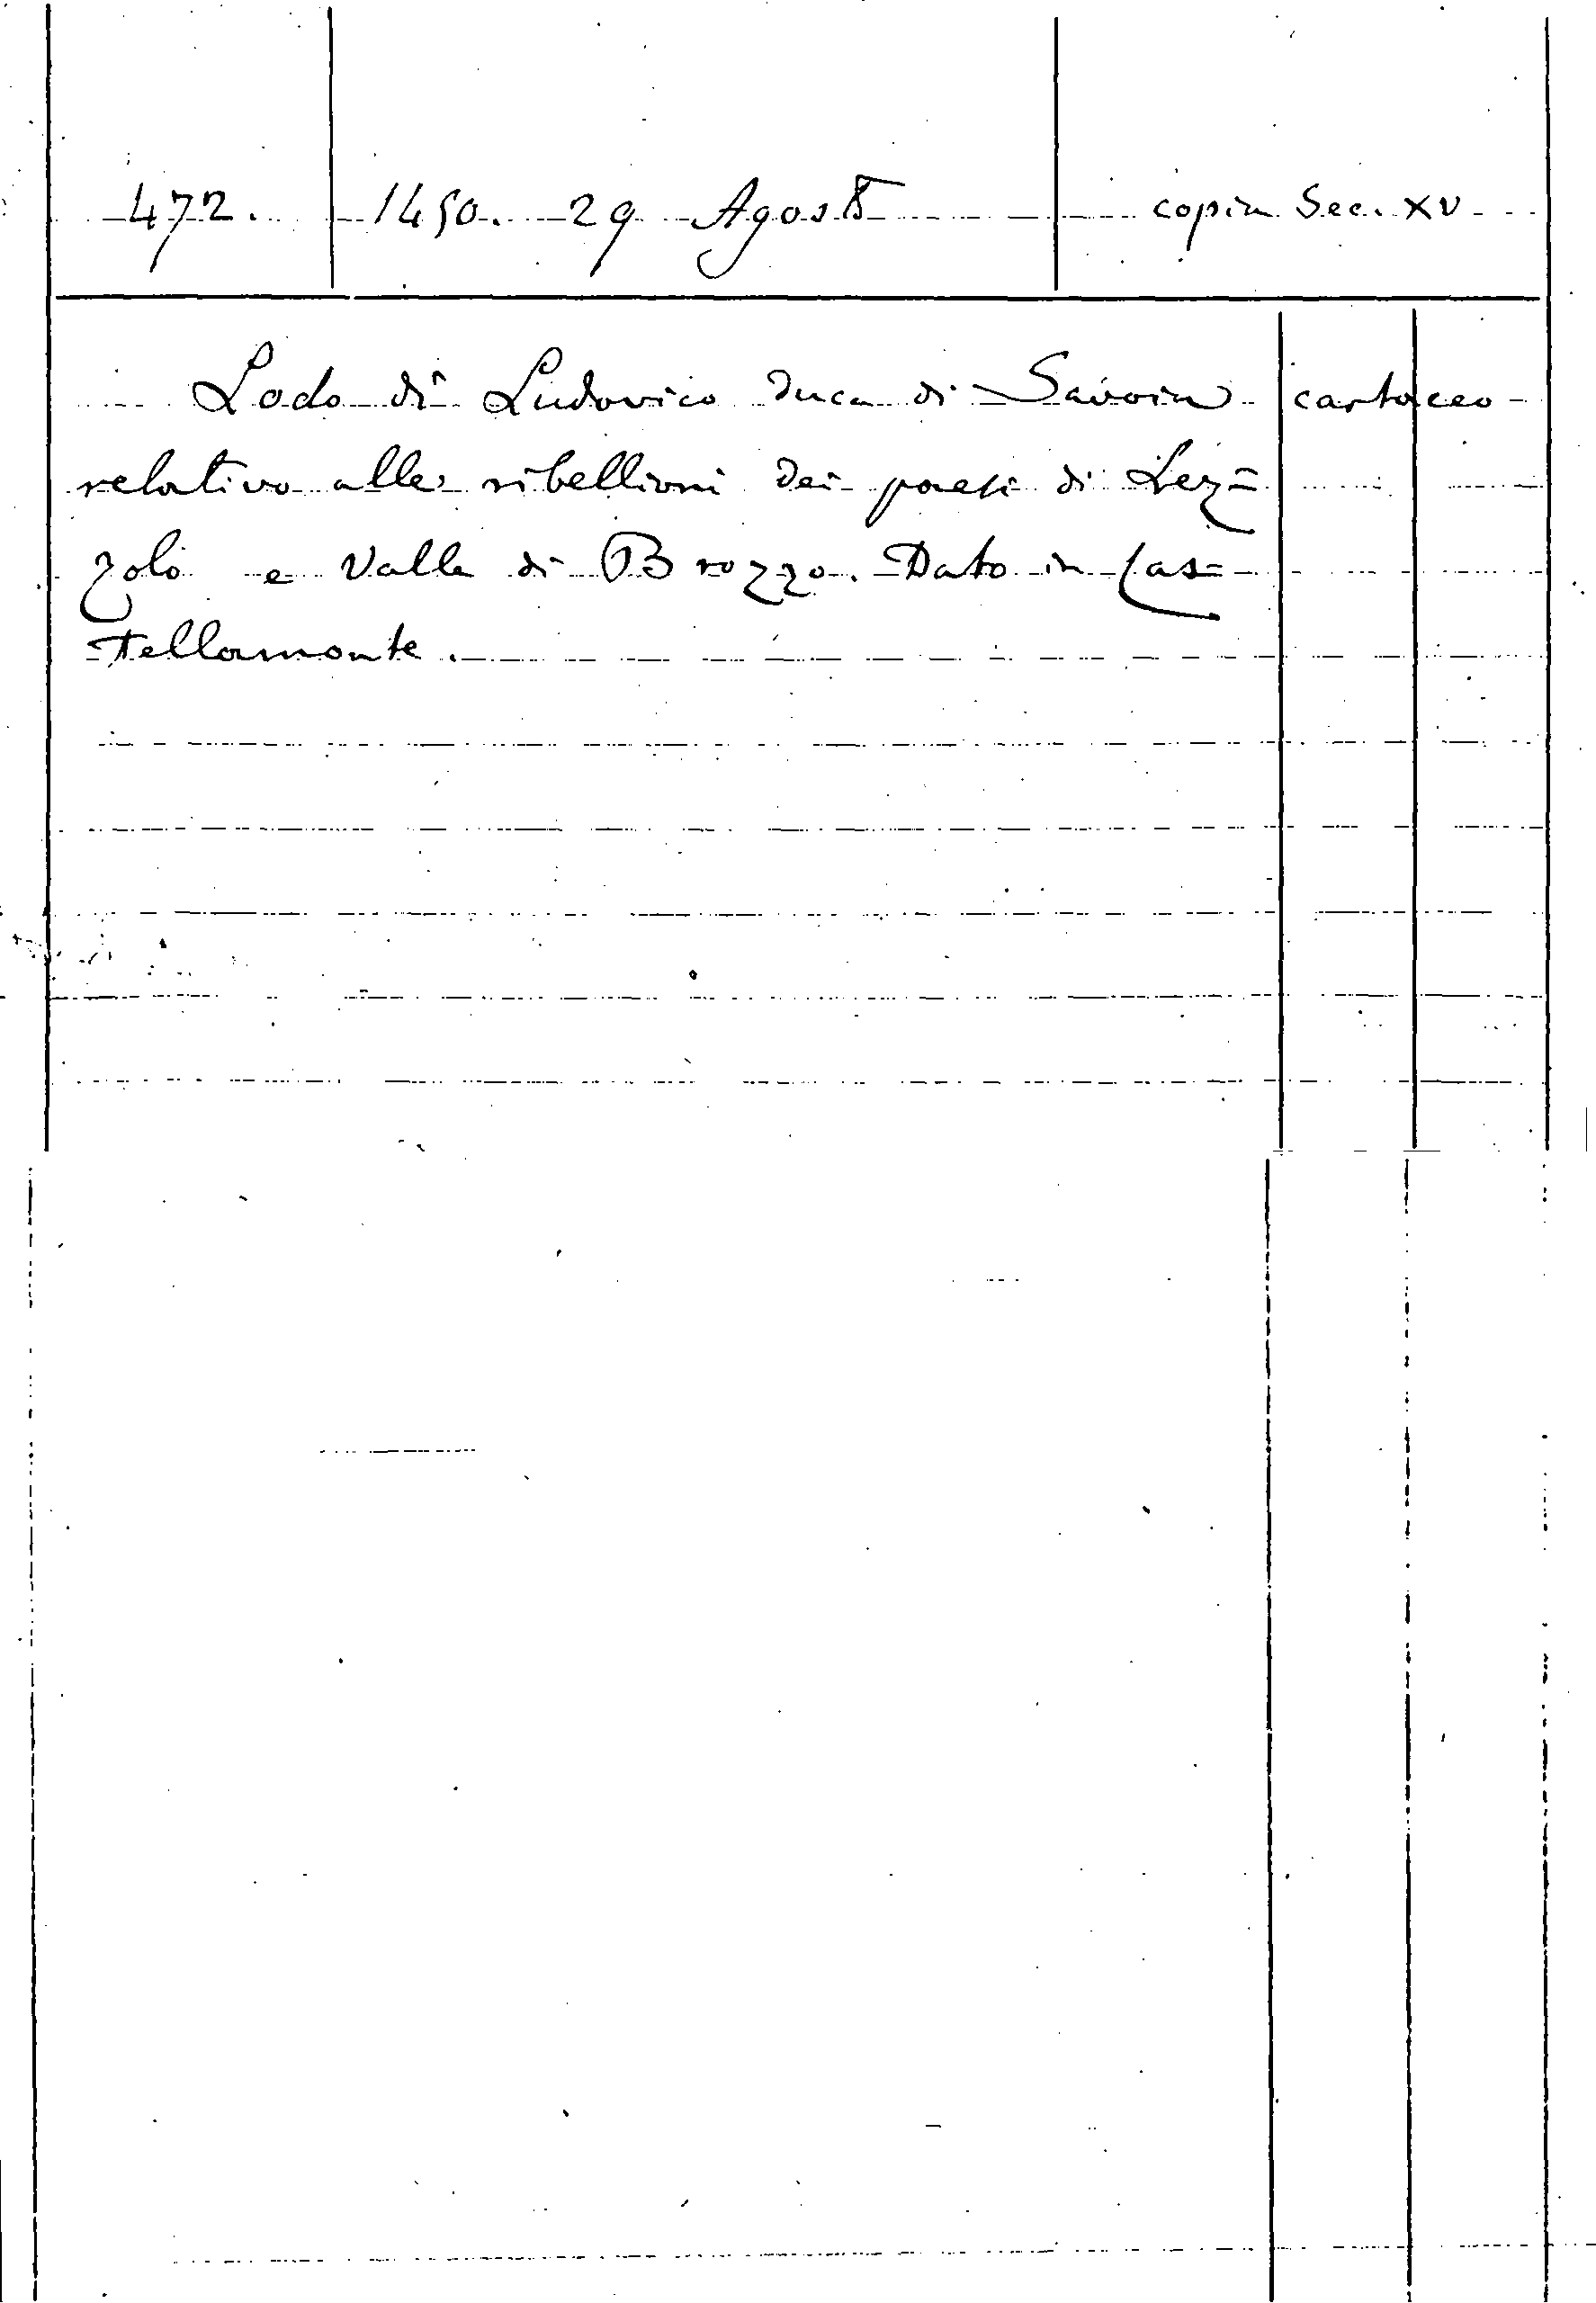 472. 1450. 29 Agosto copia Sec. XV
Lodo di Ludovico Duca di Savoia cartaceo
relativo alle ribellioni dei paesi di Lez=
zolo e Valle di Brozzo. Dato in Cas=
tellamonte.